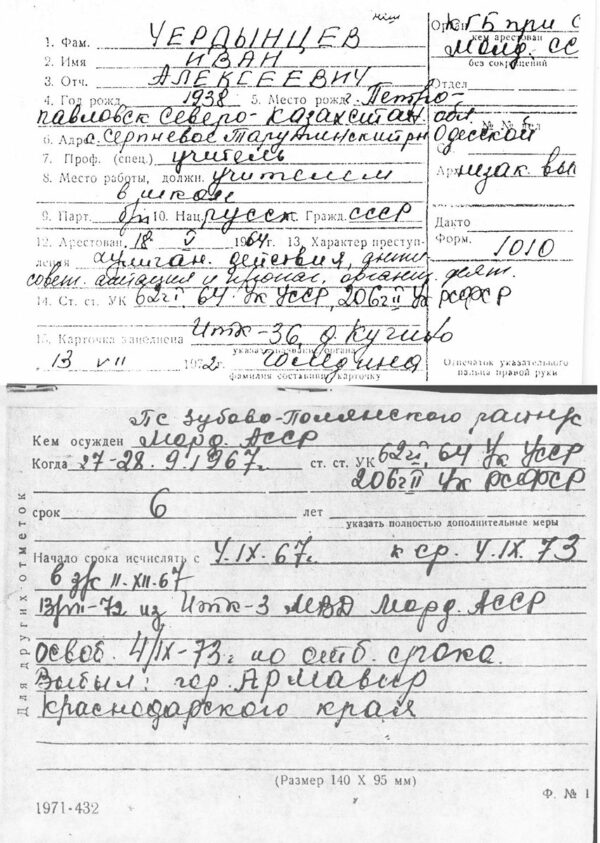 1. Фам. ЧЕРДЫНЦЕВ
2. Имя ИВАН
3. Отч. АЛЕКСЕЕВИЧ
4. Год рожд. 1938 5. Место рожд. г. Петро-
павловск Северо-Казахстан. обл.
6. Адрес с. Серпневое Тарутинский рн Одесской
7. Проф. (спец.) учитель
8. Место работы, должн. учителем
в школе
9. Парт. б/п 10. Нац. русск. Гражд. СССР
12. Арестован. 18. V 1964г. 13. Характер преступ-
ления хулиган. действия, анти
совет. агитация и пропаг. организ. деят.
14. Ст. ст. УК 62 ч I, 64 УК УССР, 206 ч II УК РСФСР
15. Карточка заполнена ИТК-36, д. Кучино
указать название органа
13 VII 1972г.
фамилия составив. карточку
Орган КГБ при С
кем арестован
Молд. СС
без сокращений
Отдел
Дакто
Форм. 1010
Отпечаток указательного
пальца правой руки
Пс Зубово-Полянского
Кем осужден Морд. АССР
Когда 27-28. 9. 1967г. ст. ст. УК 62 ч I, 64 УК УССР
206 ч II УК РСФСР
срок 6 лет
указать полностью дополнительные меры
Начало срока исчислять с 4.IX.67г. к ср. 4.IX.73
II-XII-67
из ИТК-3 МВД Морд. АССР
Освоб. 4/IX-73г. по отб. срока
Выбыл: гор. Армавир
Краснодарского края
Для других отметок
(Размер 140 X 95 мм)
1971-432
Ф. № 1